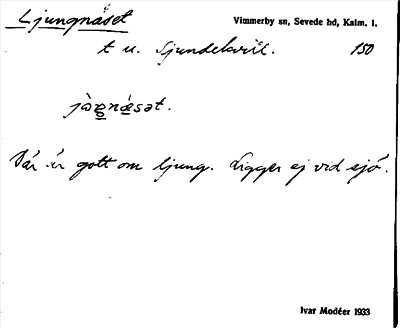 Ljungnäset
Vimmerby sn, Sevede hd, Kalm. l.
t u. Sjundekvill. 150
Där är gott om ljung. Ligger ej vid sjö.
Ivar Modéer 1933